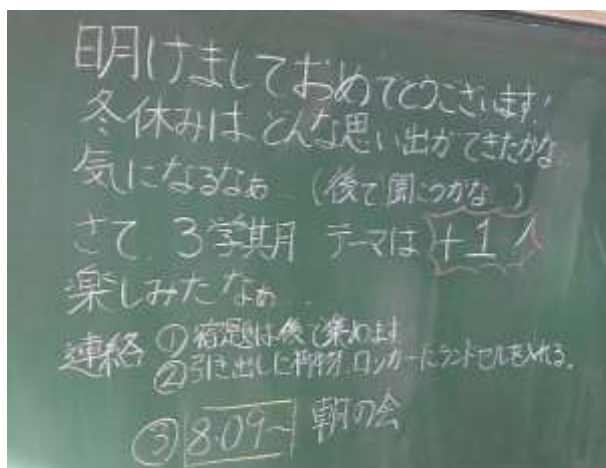 明けましておめでとうございます!
冬休みは どんな思い出ができたかな
気になるなぁ (後で聞こうかな)
さて 3学期 テーマは +1
楽しみだなぁ
連絡 ① 宿題は後で集めます
② 引き出しに 荷物 ロッカーにランドセルを入れる。
③ 8:09~ 朝の会